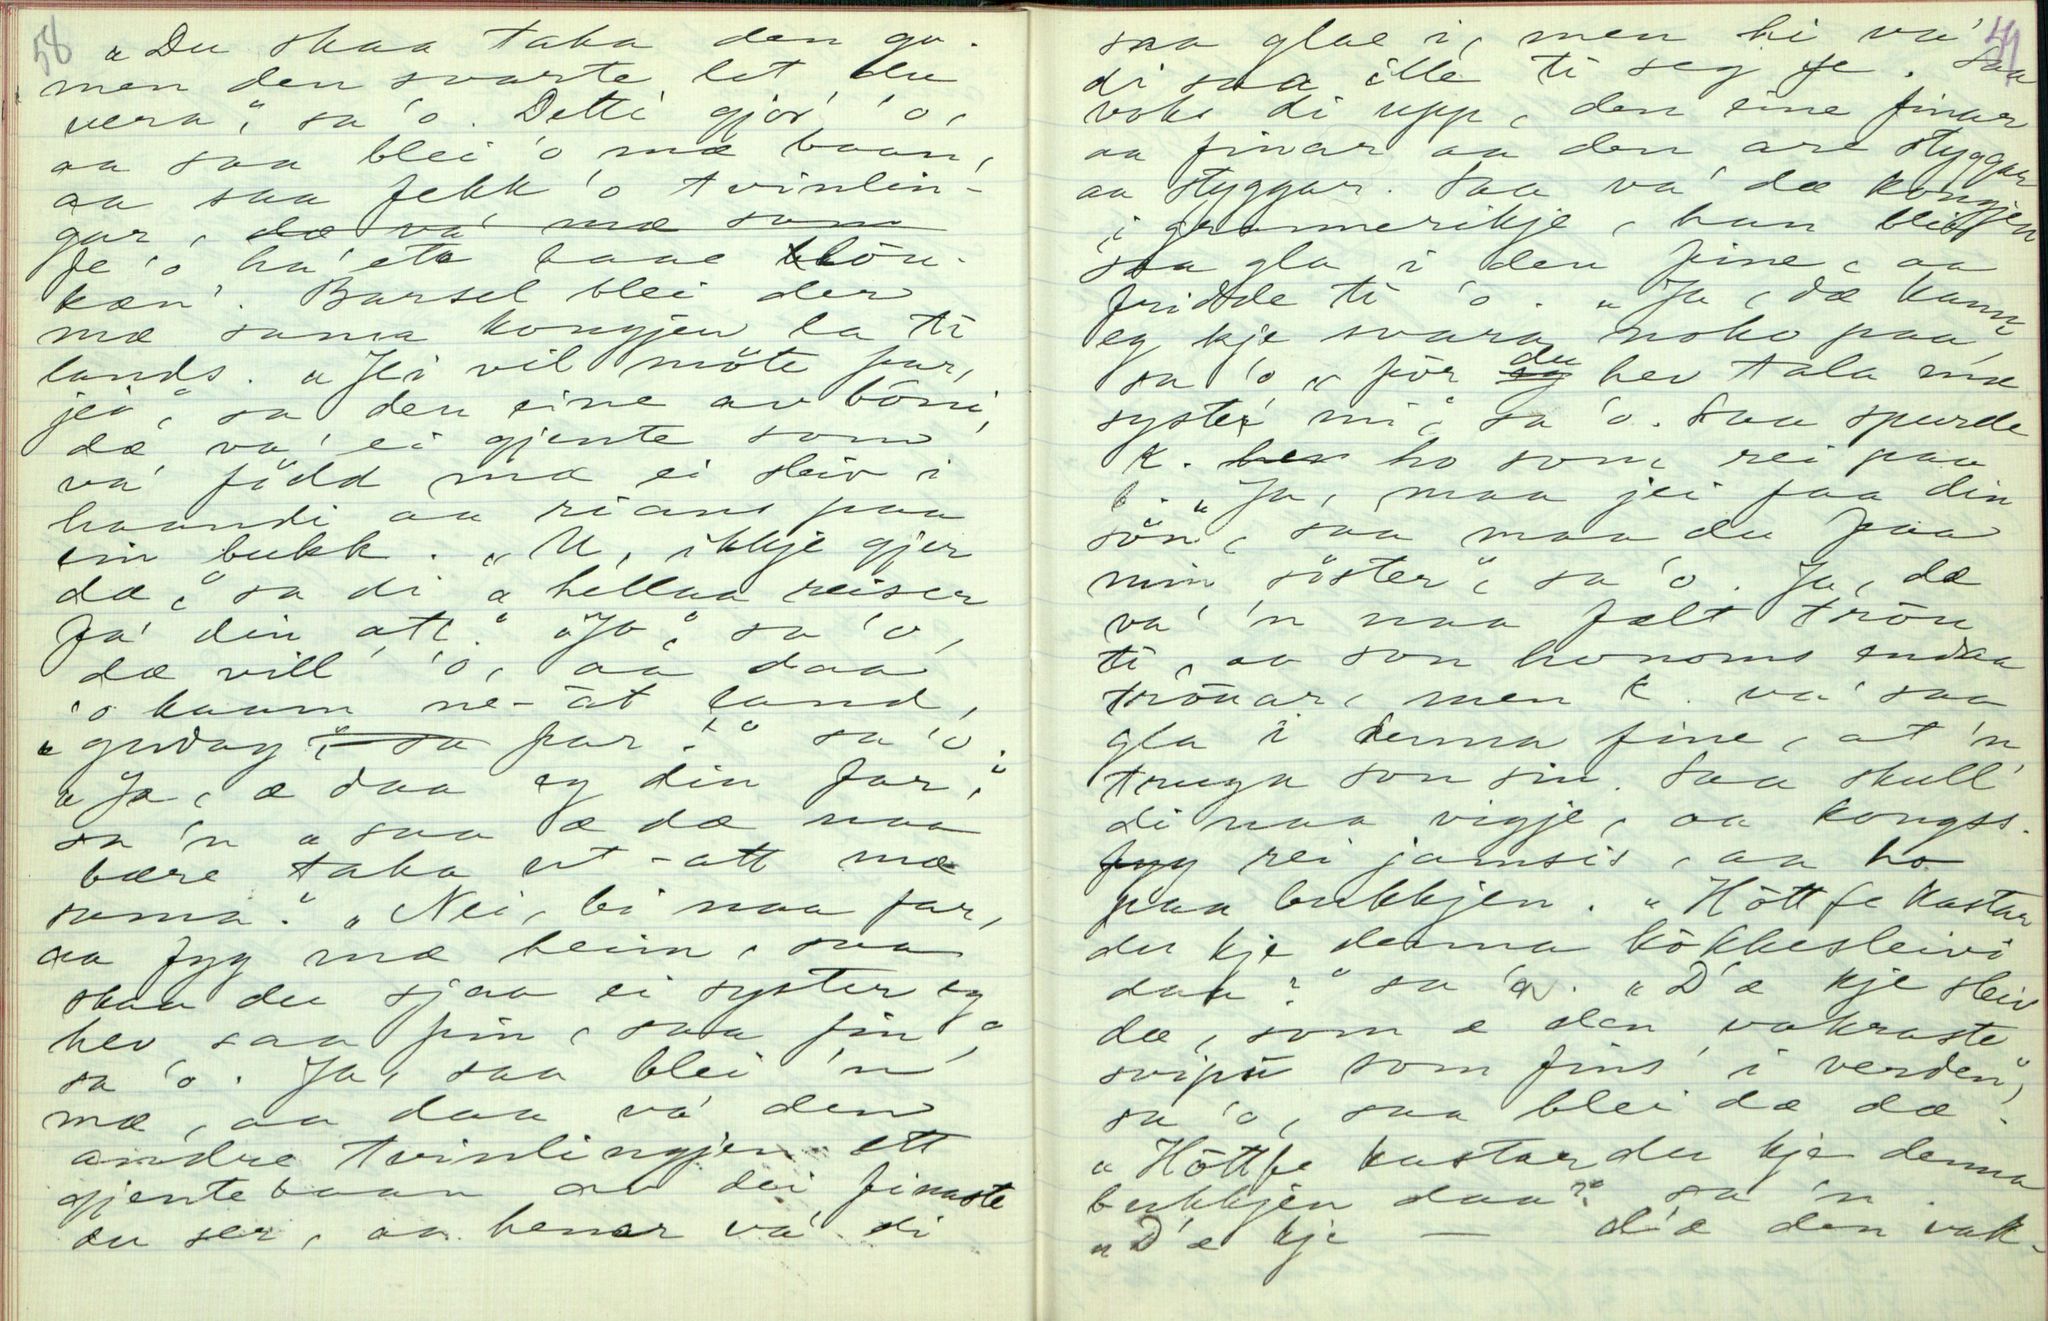 58
„Du skaa taka den go.
men den svarte let du
vera," sa 'o. Detti gjor' 'o,
aa saa blei 'o mæ baan,
aa saa fekk 'o tvinlin-
gar, dæ va' mæ som
fe 'o ha' ete baae blōn-
kæn'. Barsel blei der
mæ sama kongjen la ti
lands. „Hi vil möte far,
jei," sa den eine av bōni,
dæ va' ei gjente som
va' född mæ ei sleiv i
haandi aa rians paa
ein bukk. „U, ikkje gjer
dæ," sa di „hellaa reiser
fa' din att." „Jo," sa 'o,
dæ vill' 'o, aa daa
'o kaam ne-āt land,
„gudag," sa far." sa 'o.
„Ja, æ daa eg din far,"
sa 'n „saa æ dæ naa
bære taka ut-att mæ
sama." „Nei, bi naa far,
aa fyg mæ heim, saa
skaa du sjaa ei syster eg
hev saa fin, saa fin,"
sa 'o. Ja, saa blei 'n
mæ, aa daa va' den
andre tvinlingjen ett
gjentebaan av dei finaste
du ser, aa henar va' di
saa glae i, men hi va'
di saa ille ti seg fe. Saa
voks di upp, den eine finar
aa finar aa den are styggar
aa styggar. Saa va' dæ kongjen
i grannerikje, han blei
saa gla i den fine, aa
fridde ti 'o. „Ja, dæ kann
eg kje svara noko paa,
sa 'o „för du hev tala mæ
syster mi," sa 'o. Saa spurde
k. ho som rei paa
b. „Ja, maa jei faa din
sōn, saa maa du faa
min sōster", sa 'o. Ja, dæ
va' 'n naa fælt trōn
ti, aa son honoms endaa
trōnar, men k. va' saa
gla i denna fine, at 'n
truga son sin. Saa skull'
di naa vigje, aa kongss.
fyg rei jamsis, aa ho
paa bukkjen. „Hōtt fe kastar
du kje denna kōkkesleivi
daa?" sa 'n. „D'æ kje sleiv
dæ, som æ den vakraste
svipū som fins' i verden",
sa 'o, saa blei dæ dæ.
„Hōtt fe kastar du kje denna
bukkjen daa?" sa 'n.
„D'æ kje — d'æ den vak-